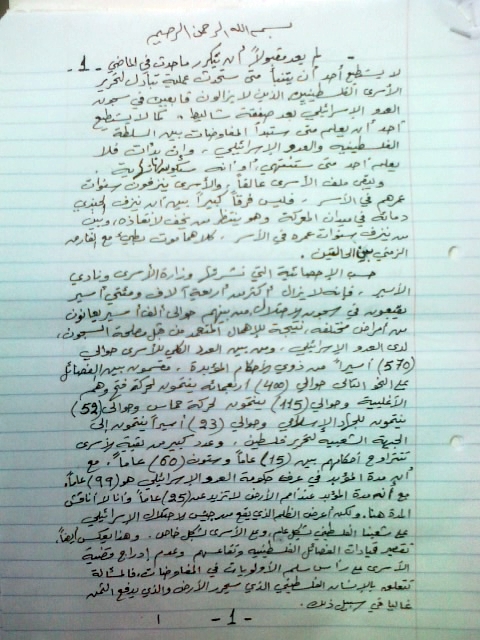 بسم الله الرحمن الرحيم
لم يعد مقبولاً أن يتكرر ما حدث في الماضي - 1 -
لا يستطيع أحد أن يتنبأ متى ستحدث عملية تبادل لتحرير
الأسرى الفلسطينيين الذين لا يزالون قابعين في سجون
العدو الإسرائيلي بعد صفقة شاليط، كما لا يستطيع
أحد أن يعلم متى ستبدأ المفاوضات بين السلطة
الفلسطينية والعدو الإسرائيلي، وإن بدأت فلا
يعلم أحد متى ستنتهي، أو أنه ستكون
ويبقى ملف الأسرى عالقاً، والأسرى ينزفون سنوات
عمرهم في الأسر. فليس فرقاً كبيراً بين أن ينزف الجندي
دمائه في ميدان المعركة وهو ينتظر من يخف لإنقاذه، وبين
من ينزف سنوات عمره في الأسر. كلاهما موت بطيء مع الفارق
الزمني بين الحالتين.
حسب الإحصائية التي نشر وزارة الأسرى ونادي
الأسير، فإنه لا يزال أكثر من أربعة آلاف ومئتي أسير
يقبعون في سجون الاحتلال، من بينهم حوالي ألف أسير يعانون
من أمراض مختلفة، نتيجة للإهمال المتعمد من قبل مصلحة السجون،
لدى العدو الإسرائيلي. ومن بين العدد الكلي للأسرى حوالي
(570) أسيراً من ذوي الأحكام المؤبدة. مقسمون بين الفصائل
على النحو التالي حوالي (400) أربعمائة ينتمون لحركة فتح وهم
الأغلبية وحوالي (115) ينتمون لحركة حماس وحوالي (52)
ينتمون للجهاد الإسلامي وحوالي (23) أسيراً ينتمون إلى
الجبهة الشعبية لتحرير فلسطين، وعدد كبير من بقية الأسرى
تتراوح أحكامهم بين (15) عاماً وستون (60) عاماً، مع
أن مدة المؤبد في عرف حكومة العدو الإسرائيلي هو (99) عاماً،
مع أنه مدة المؤبد عند أمم الأرض لا تزيد عن (25) عاماً وأنا لا أناقش
المدة هنا، ولكن أعرض الظلم الذي يقع من جيش الاحتلال الإسرائيلي
على شعبنا الفلسطيني بشكل عام، وعلى الأسرى بشكل خاص. وهنا يعكس أيضاً،
تقصير قيادات الفصائل الفلسطينية وتقاعسهم وعدم إدراج قضية
الأسرى على رأس سلم الأولويات في المفاوضات، فالمسألة
تتعلق بالإنسان الفلسطيني الذي سيحرر الأرض والذي يدفع الثمن
غالياً في سبيل ذلك.
- 1 -